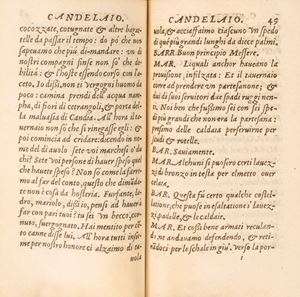 CANDELAIO.
cocozzate, cotugnate & altre bagattelle
da passar il tempo: dò pò che non
sapeuamo che più dimandare: vn di
nostri compagni finse non sò che debilità:
& l'hoste essendo corso con l'aceto,
Io dissi, non ti vergogni huomo da
poco: camina prendi dell'acqua nampha,
di fiori di cetrangoli, & porta della
maluasia di Candia. All'hora il tauernaio
non sò che si rinegasse egli: &
poi comincia ad cridare, dicendo: in nome
del diauolo sete voi marchesi o duchi?
Sete voi persone di hauer speso quel che
hauete speso? Non sò come la faremo
al far del conto, questo che dimandate
non è cosa da hosteria. Furfante, ladro,
mariolo, dissi io, pensi ad hauer à
far con pari tuoi? tu sei vn becco, cornuto,
suergognato. Hai mentito per cento
canne disse lui. All'hora tutti insieme
per nostro honore ci alzaimo di tauola
CANDELAIO. 49
uola, & acciaffaimo ciascuno vn spedo
di què più grandi lunghi da diece palmi,
BAR. Buon principio Messere.
MAR. Liquali anchor haueano la
prouisione infilzata. Et il tauernaio
corre ad prendere vn partesanone; &
dui di suoi seruitori due spadi rugginenti.
Noi ben che fussimo sei con sei spedi
più grandi che non era la partesana:
presimo delle caldaia per seruirne per
scudi & rotelle.
BAR. Sauiamente.
MAR. Alchuni si posero certi lauezzi
di bronzo in testa per elmetto ouer
celata,
BAR. Questa fù certo qualche costellatione,
che puose in esaltatione i lauezzi,
padelle, & le caldaie.
MAR. Et così bene armati reculando,
ne andauamo defendendo, & retirandoci
per le schale in giù, verso la por-